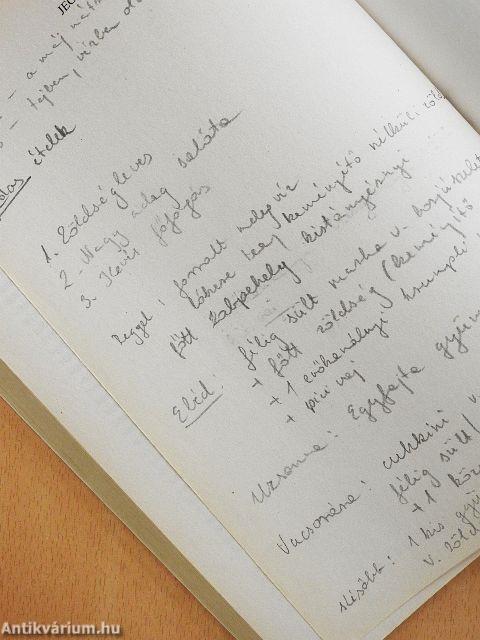 JEG
- a máj
- tejben, vízben
ételek
1. Zöldségleves
2. Nagy adag saláta
3. Kevés főfogás
Reggel: forralt meleg víz
kemény nélkül: zöld
főtt zabpehely kistányérnyi
Ebéd: félig sült marha v. borjúszelet
+ főtt zöldség (keményítő
+ 1 evőkanálnyi krumpli
+ pici vaj
Uzsonna: Egyfajta gyüm
Vacsorára: cukkini v
félig sült
+ 1 köz
később: 1 kis gyü
v. zöld
Antikvárium.hu